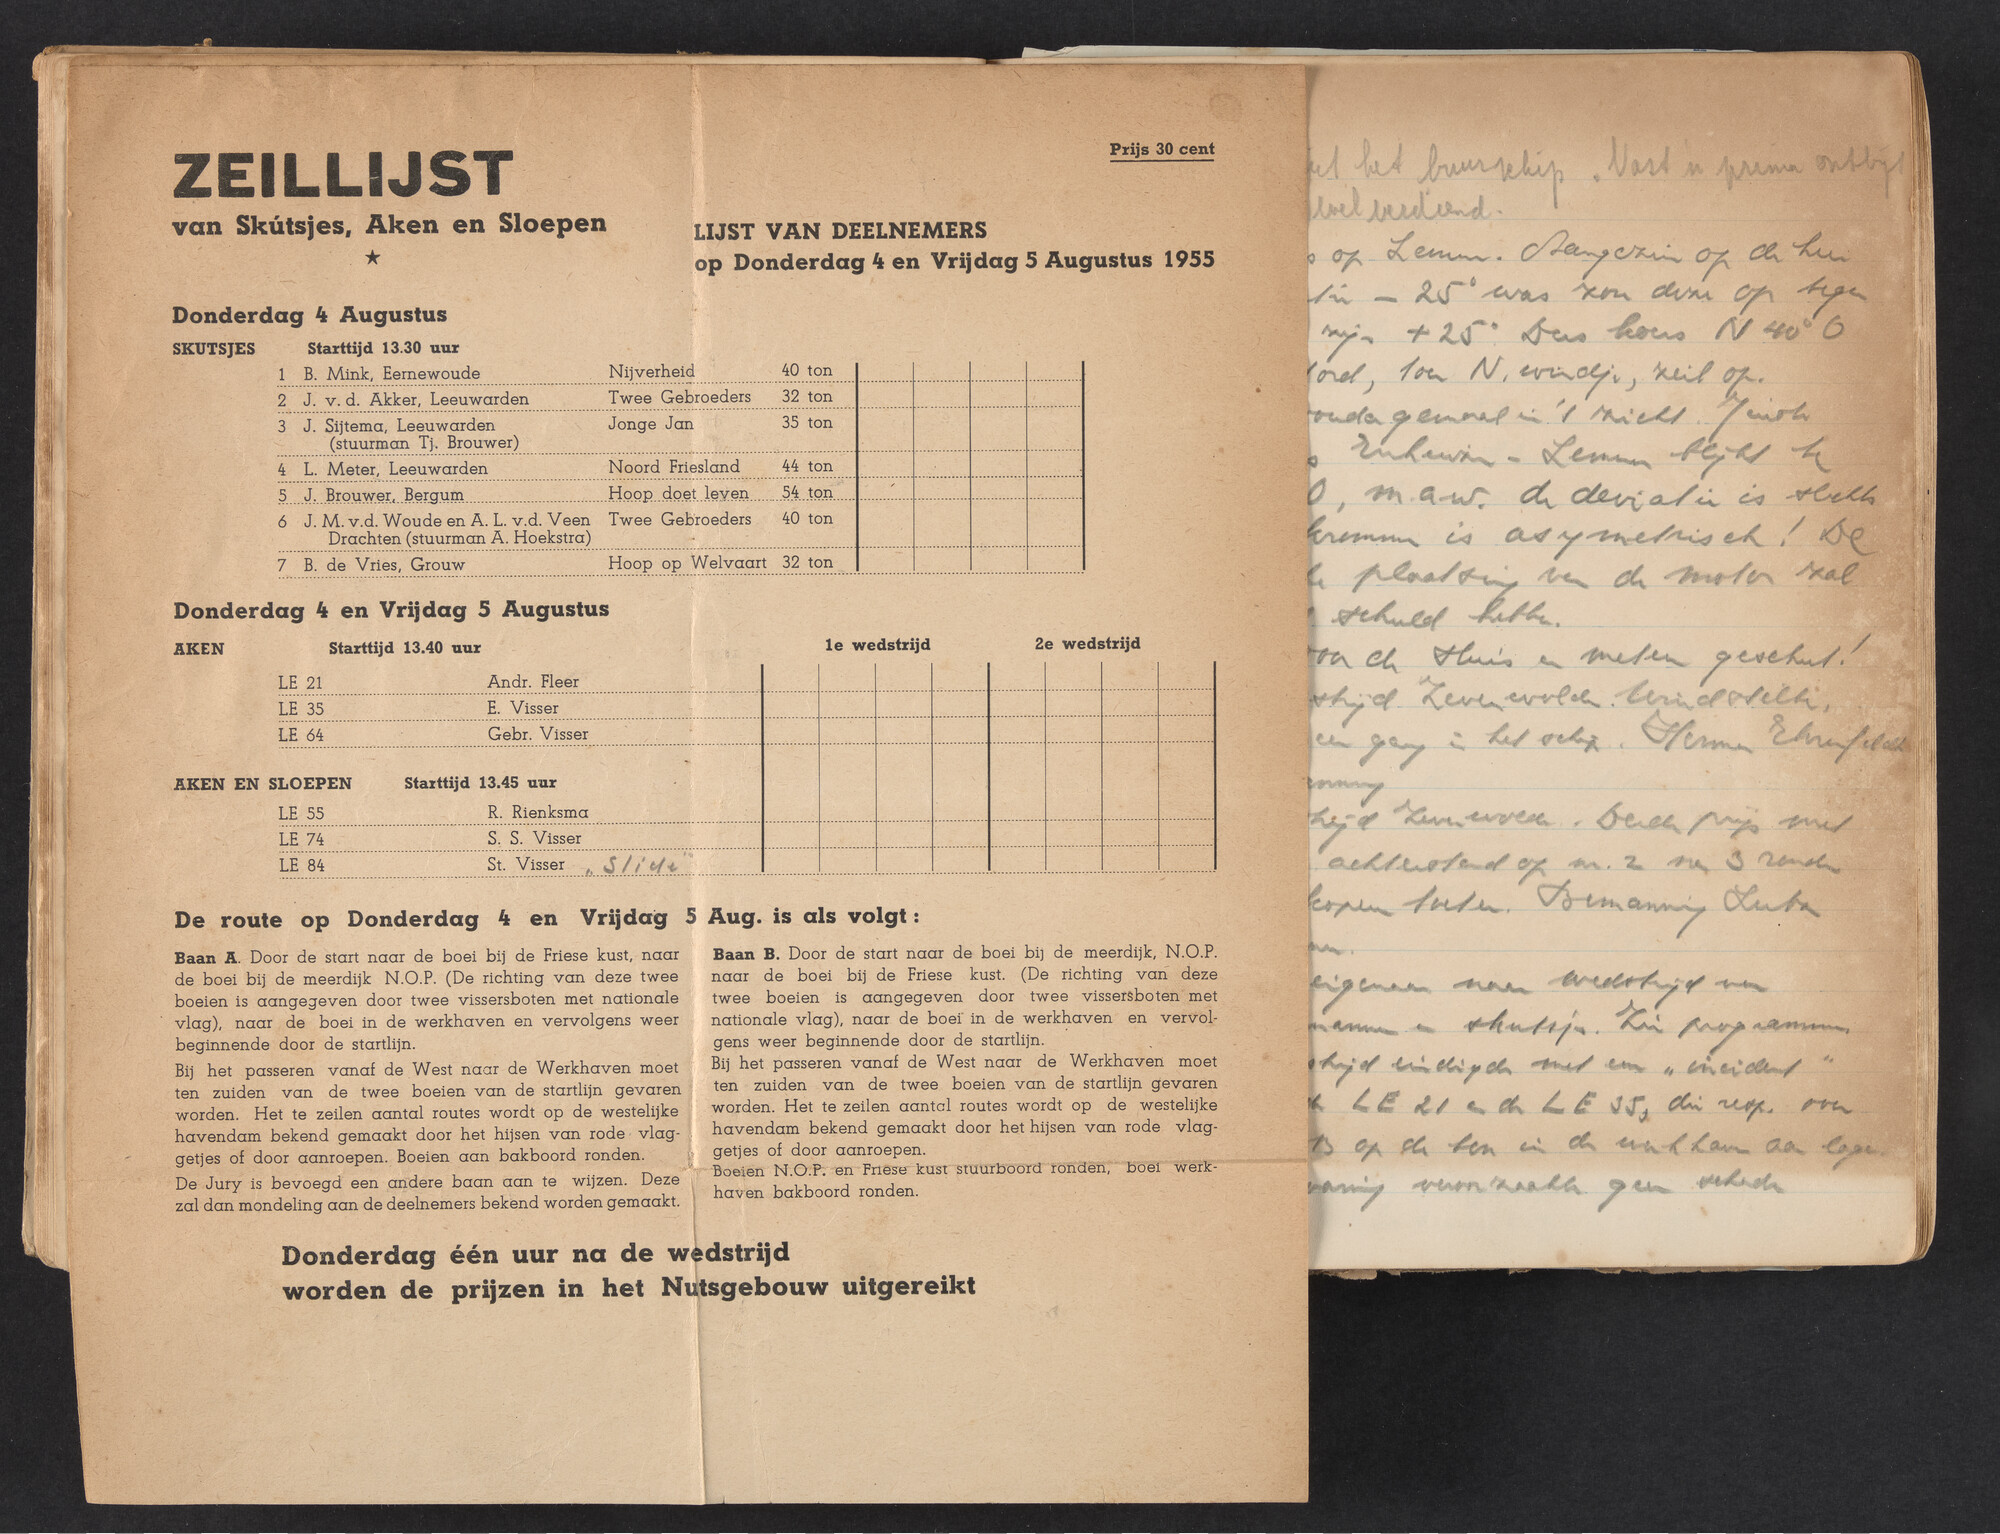 ZEILLIJST
van Skútsjes, Aken en Sloepen
★
Prijs 30 cent
LIJST VAN DEELNEMERS
op Donderdag 4 en Vrijdag 5 Augustus 1955
Donderdag 4 Augustus
SKUTSJES Starttijd 13.30 uur
1 B. Mink, Eernewoude Nijverheid 40 ton
2 J. v. d. Akker, Leeuwarden Twee Gebroeders 32 ton
3 J. Sijtema, Leeuwarden Jonge Jan 35 ton
(stuurman Tj. Brouwer)
4 L. Meter, Leeuwarden Noord Friesland 44 ton
5 J. Brouwer, Bergum Hoop doet leven 54 ton
6 J. M. v.d. Woude en A. L. v.d. Veen Twee Gebroeders 40 ton
Drachten (stuurman A. Hoekstra)
7 B. de Vries, Grouw Hoop op Welvaart 32 ton
Donderdag 4 en Vrijdag 5 Augustus
AKEN Starttijd 13.40 uur 1e wedstrijd 2e wedstrijd
LE 21 Andr. Fleer
LE 35 E. Visser
LE 64 Gebr. Visser
AKEN EN SLOEPEN Starttijd 13.45 uur
LE 55 R. Rienksma
LE 74 S. S. Visser
LE 84 St. Visser
De route op Donderdag 4 en Vrijdag 5 Aug. is als volgt:
Baan A. Door de start naar de boei bij de Friese kust, naar
de boei bij de meerdijk N.O.P. (De richting van deze twee
boeien is aangegeven door twee vissersboten met nationale
vlag), naar de boei in de werkhaven en vervolgens weer
beginnende door de startlijn.
Bij het passeren vanaf de West naar de Werkhaven moet
ten zuiden van de twee boeien van de startlijn gevaren
worden. Het te zeilen aantal routes wordt op de westelijke
havendam bekend gemaakt door het hijsen van rode vlag-
getjes of door aanroepen. Boeien aan bakboord ronden.
De Jury is bevoegd een andere baan aan te wijzen. Deze
zal dan mondeling aan de deelnemers bekend worden gemaakt.
Baan B. Door de start naar de boei bij de meerdijk, N.O.P.
naar de boei bij de Friese kust. (De richting van deze
twee boeien is aangegeven door twee vissersboten met
nationale vlag), naar de boei in de werkhaven en vervol-
gens weer beginnende door de startlijn.
Bij het passeren vanaf de West naar de Werkhaven moet
ten zuiden van de twee boeien van de startlijn gevaren
worden. Het te zeilen aantal routes wordt op de westelijke
havendam bekend gemaakt door het hijsen van rode vlag-
getjes of door aanroepen.
Boeien N.O.P. en Friese kust stuurboord ronden, boei werk-
haven bakboord ronden.
Donderdag één uur na de wedstrijd
worden de prijzen in het Nutsgebouw uitgereikt
het buurschip
op Lemmer. Aangezien op de
- 25° was zou deze op
+ 25° Dus koers N 40° O
N. windje, zeil op.
gemaal in 't zicht.
Lemmer blijkt te
m.a.w. de deviatie is
is asymetrisch! De
plaatsing van de motor zal
schuld hebben.
de sluis en meteen geschut!
Zevenwolden. Windstilte,
gang in het schip. Herman
Zevenwolden. Derde prijs met
achterstand op nr. 2 na 3 ronden
Bemanning
eigenaar naar wedstrijd van
en skutsjes. Zie programma
eindigde met een „incident"
LE 21 en de LE 35, die resp. over
op de ton in de werkhaven aan
veroorzaakte geen schade